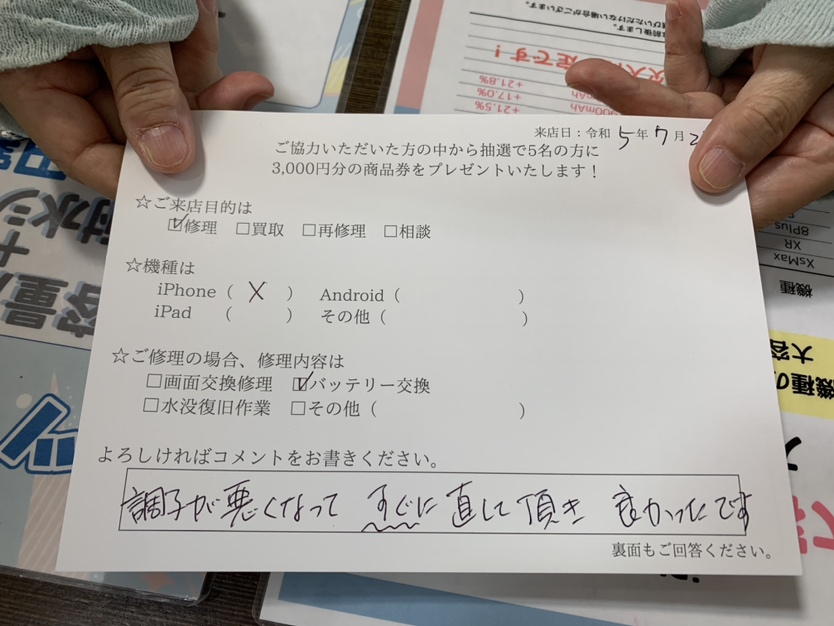 来店日：令和 5年 7月 2
ご協力いただいた方の中から抽選で5名の方に
3,000円分の商品券をプレゼントいたします！
☆ご来店目的は
☑修理 □買取 □再修理 □相談
☆機種は
iPhone（ X ） Android（ ）
iPad （ ） その他（ ）
☆ご修理の場合、修理内容は
□画面交換修理 ☑バッテリー交換
□水没復旧作業 □その他（ ）
よろしければコメントをお書きください。
調子が悪くなって すぐに直して頂き 良かったです
裏面もご回答ください。
+21.8%
+17.0%
+21.5%
8Plus
XR
XsMax
機種
大容
機種の